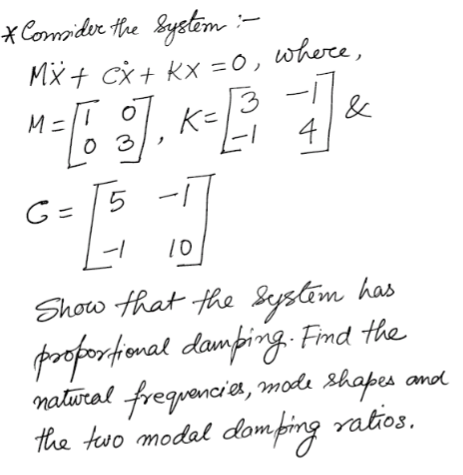 * Consider the System :-
MẌ + CẊ + KX = 0, where,
M = [1 0; 0 3], K = [3 -1; -1 4] &
C = [5 -1; -1 10]
Show that the system has
proportional damping. Find the
natural frequencies, mode shapes and
the two modal damping ratios.